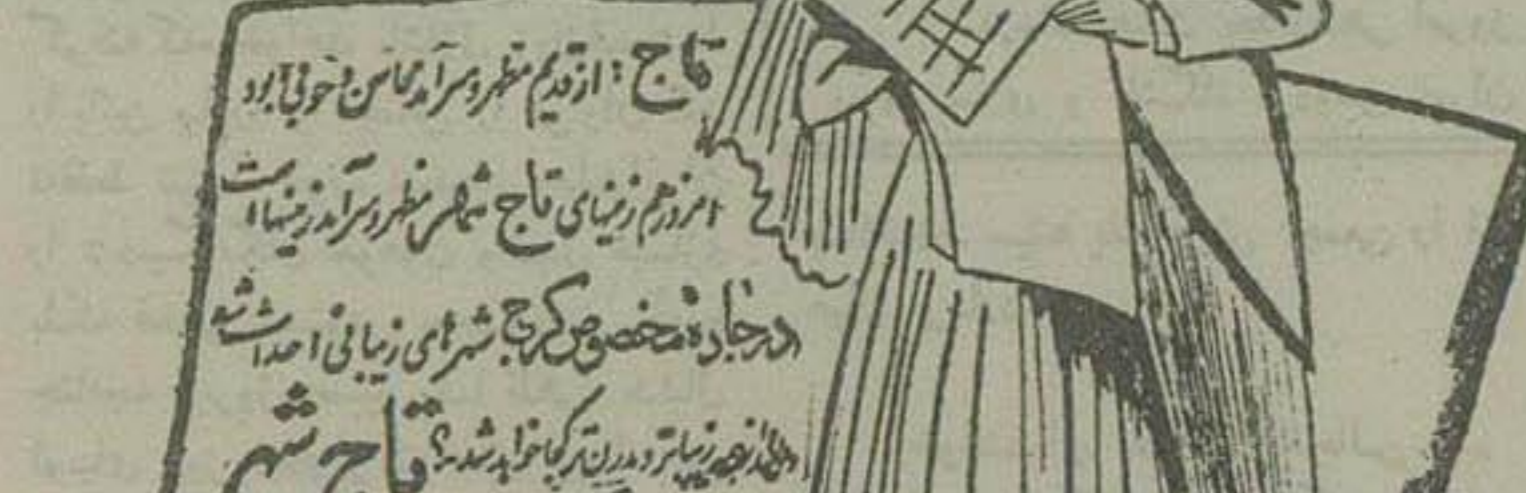 تاج : از قدیم مظهر و سرآمد محاسن و خوبی‌ها بود
امروز هم زمینهای تاج شهر مظهر و سرآمد زمینها است
در جاده مخصوص کرج شهرهای زیبائی احداث شد
از همه زیباتر و مدرن‌تر کجا خواهد شد؟ تاج شهر